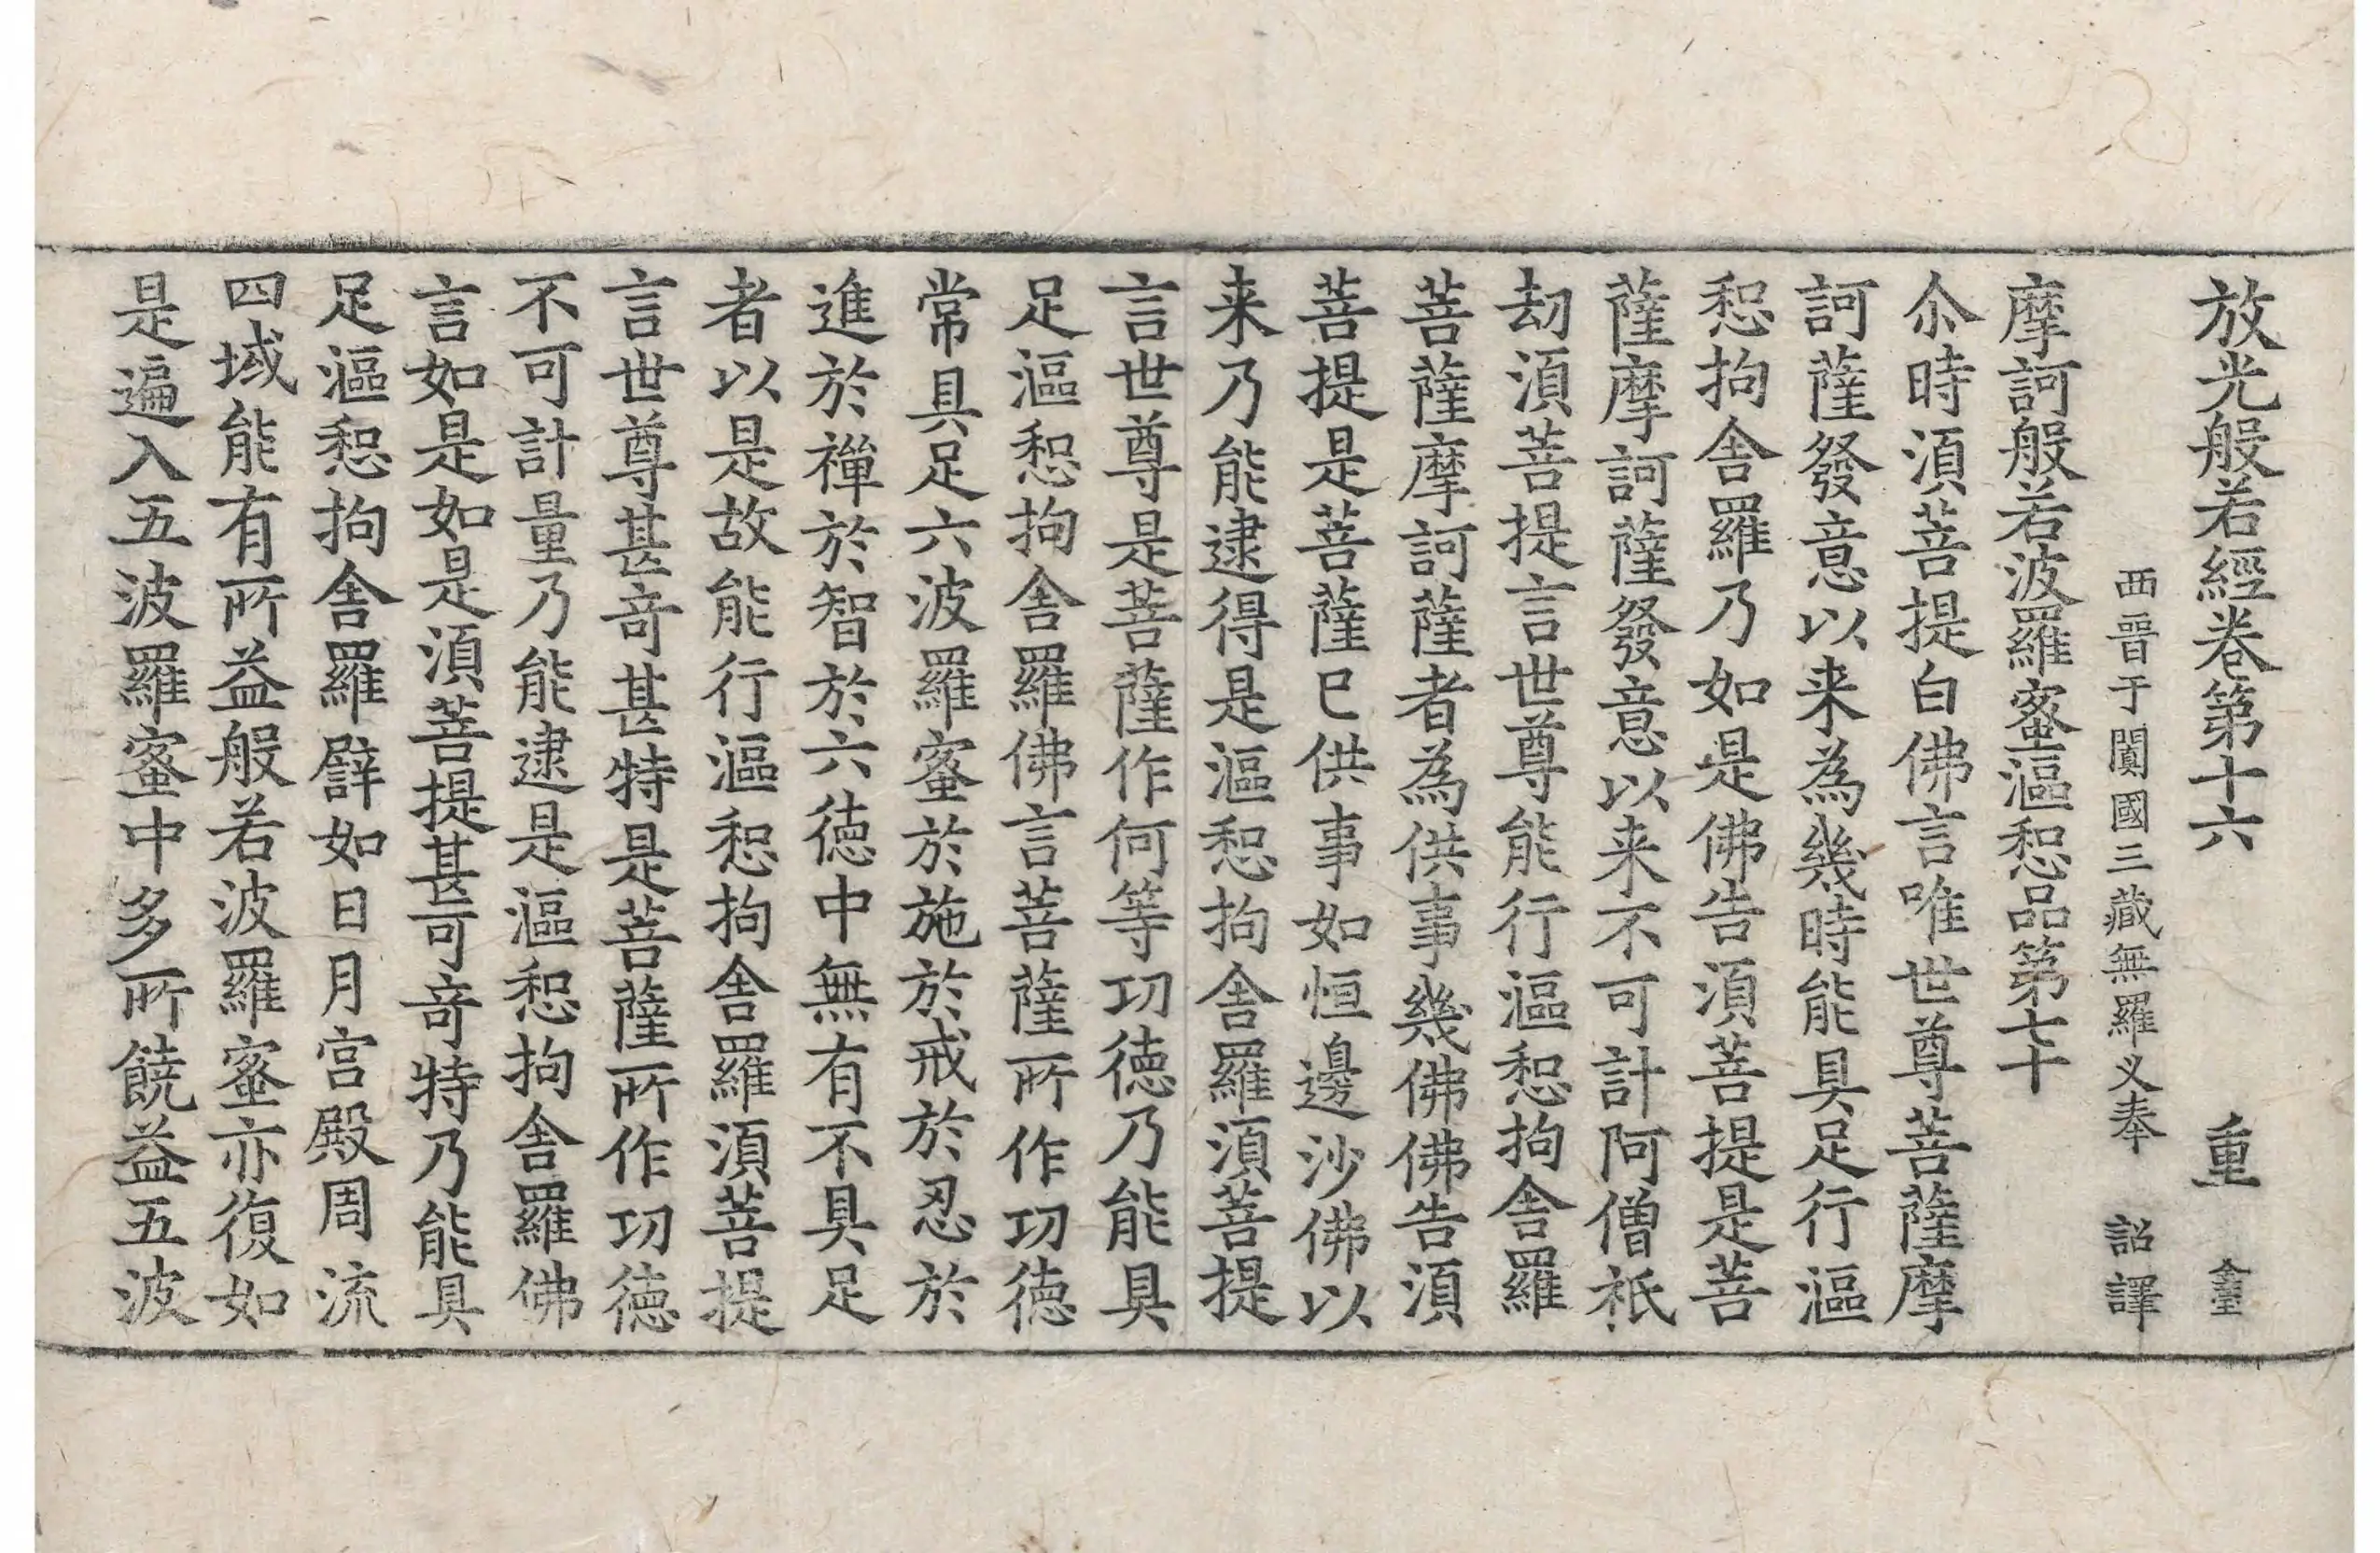 放光般若經卷第十六 重
西晉于闐國三藏無羅叉奉 詔譯
摩訶般若波羅蜜漚惒品第七十
尒時須菩提白佛言唯世尊菩薩摩
訶薩發意以来為幾時能具足行漚
惒拘舍羅乃如是佛告須菩提是菩
薩摩訶薩發意以来不可計阿僧祇
劫須菩提言世尊能行漚惒拘舍羅
菩薩摩訶薩者為供事幾佛佛告須
菩提是菩薩已供事如恒邊沙佛以
来乃能逮得是漚惒拘舍羅須菩提
言世尊是菩薩作何等功德乃能具
足漚惒拘舍羅佛言菩薩所作功德
常具足六波羅蜜於施於戒於忍於
進於禪於智於六德中無有不具足
者以是故能行漚惒拘舍羅須菩提
言世尊甚奇甚特是菩薩所作功德
不可計量乃能逮是漚惒拘舍羅佛
言如是如是須菩提甚可奇特乃能具
足漚惒拘舍羅譬如日月宮殿周流
四域能有所益般若波羅蜜亦復如
是遍入五波羅蜜中多所饒益五波